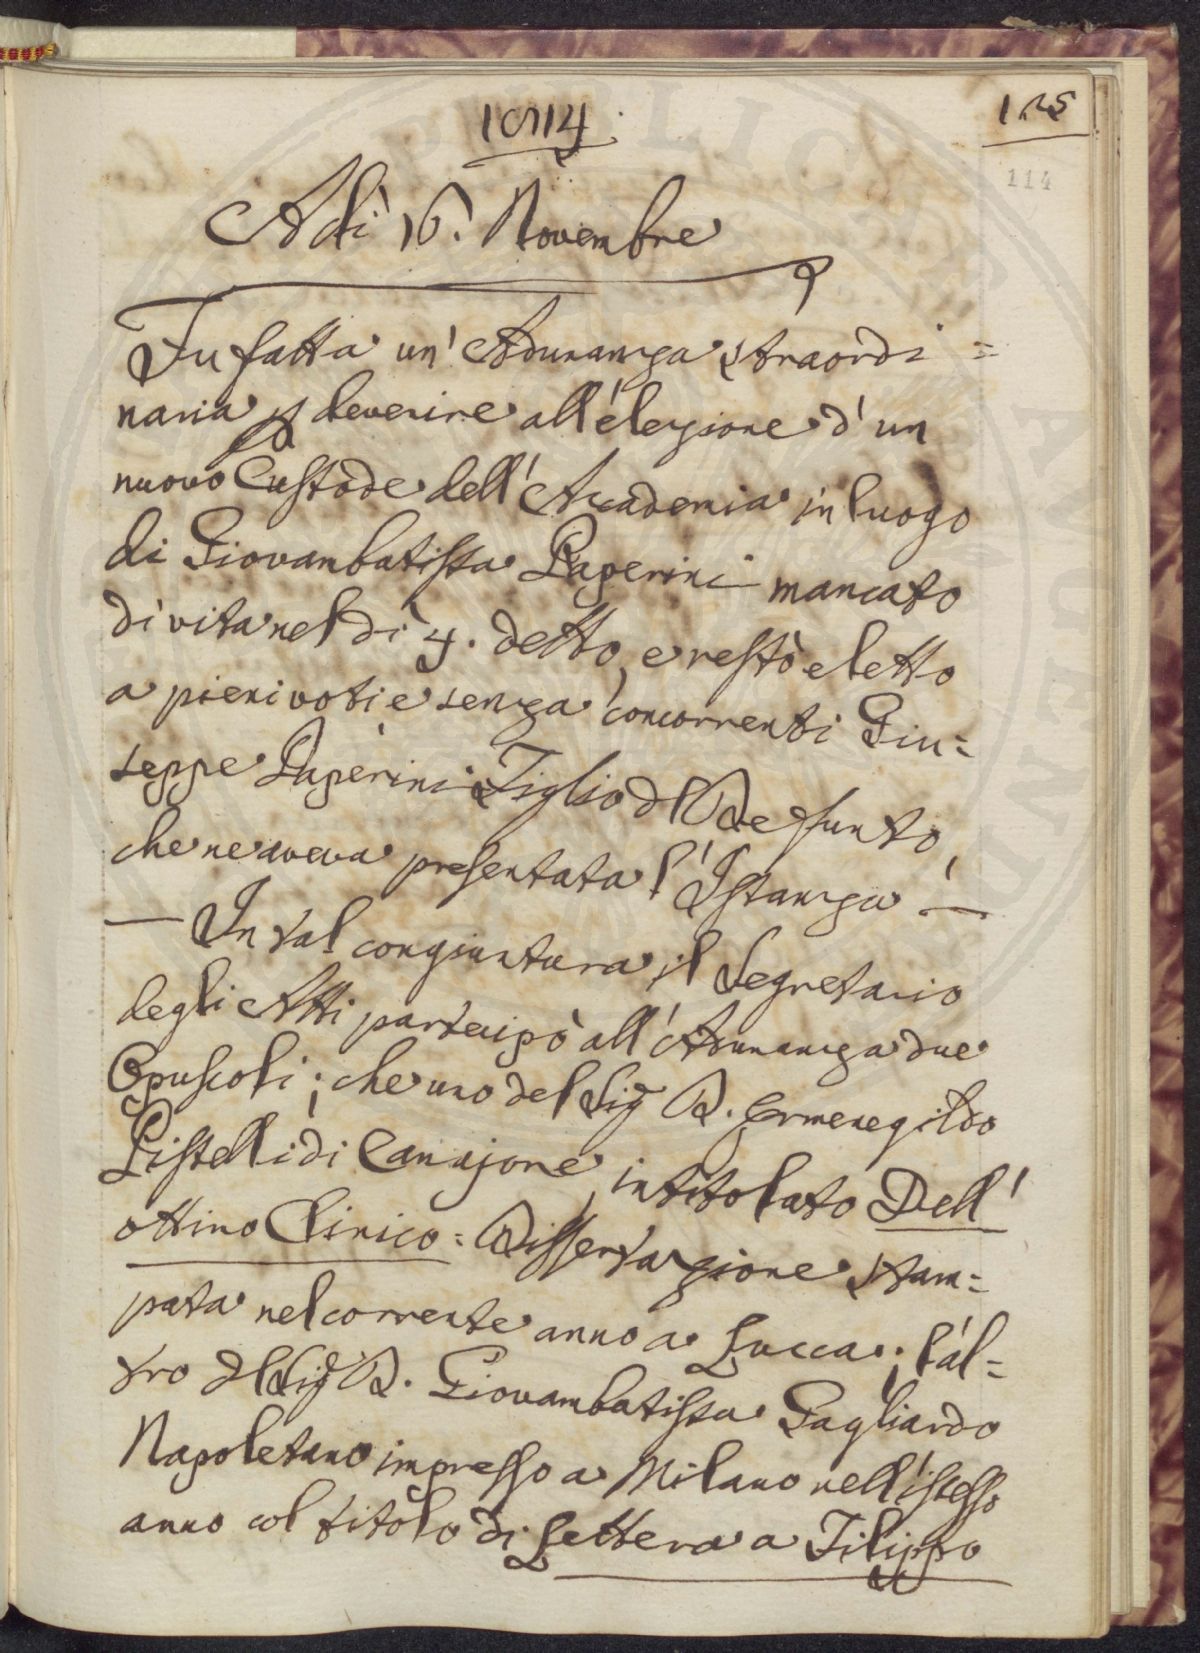 1814.
125
114
Adì 16. Novembre
Fu fatta un' Adunanza straordi=
naria p devenire all'elezione d'un
nuovo Custode dell'Accademia in luogo
di Giovanbatista Paperini mancato
di vita nel dì 4. detto, e restò eletto
a pieni voti e senza concorrenti Giu=
seppe Paperini Figlio dl Defunto,
che ne aveva presentata l'Istanza. —
— In tal congiuntura il Segretario
degli Atti partecipò all'Adunanza due
Opuscoli; che uno del Sig D. Ermenegildo
Pistelli di Camajore, intitolato Dell'
ottimo Clinico = Dissertazione stam=
pata nel corrente anno a Lucca; l'al=
tro dl Sig D. Giovambatista Gagliardo
Napoletano impresso a Milano nell'istesso
anno col titolo di Lettera a Filippo